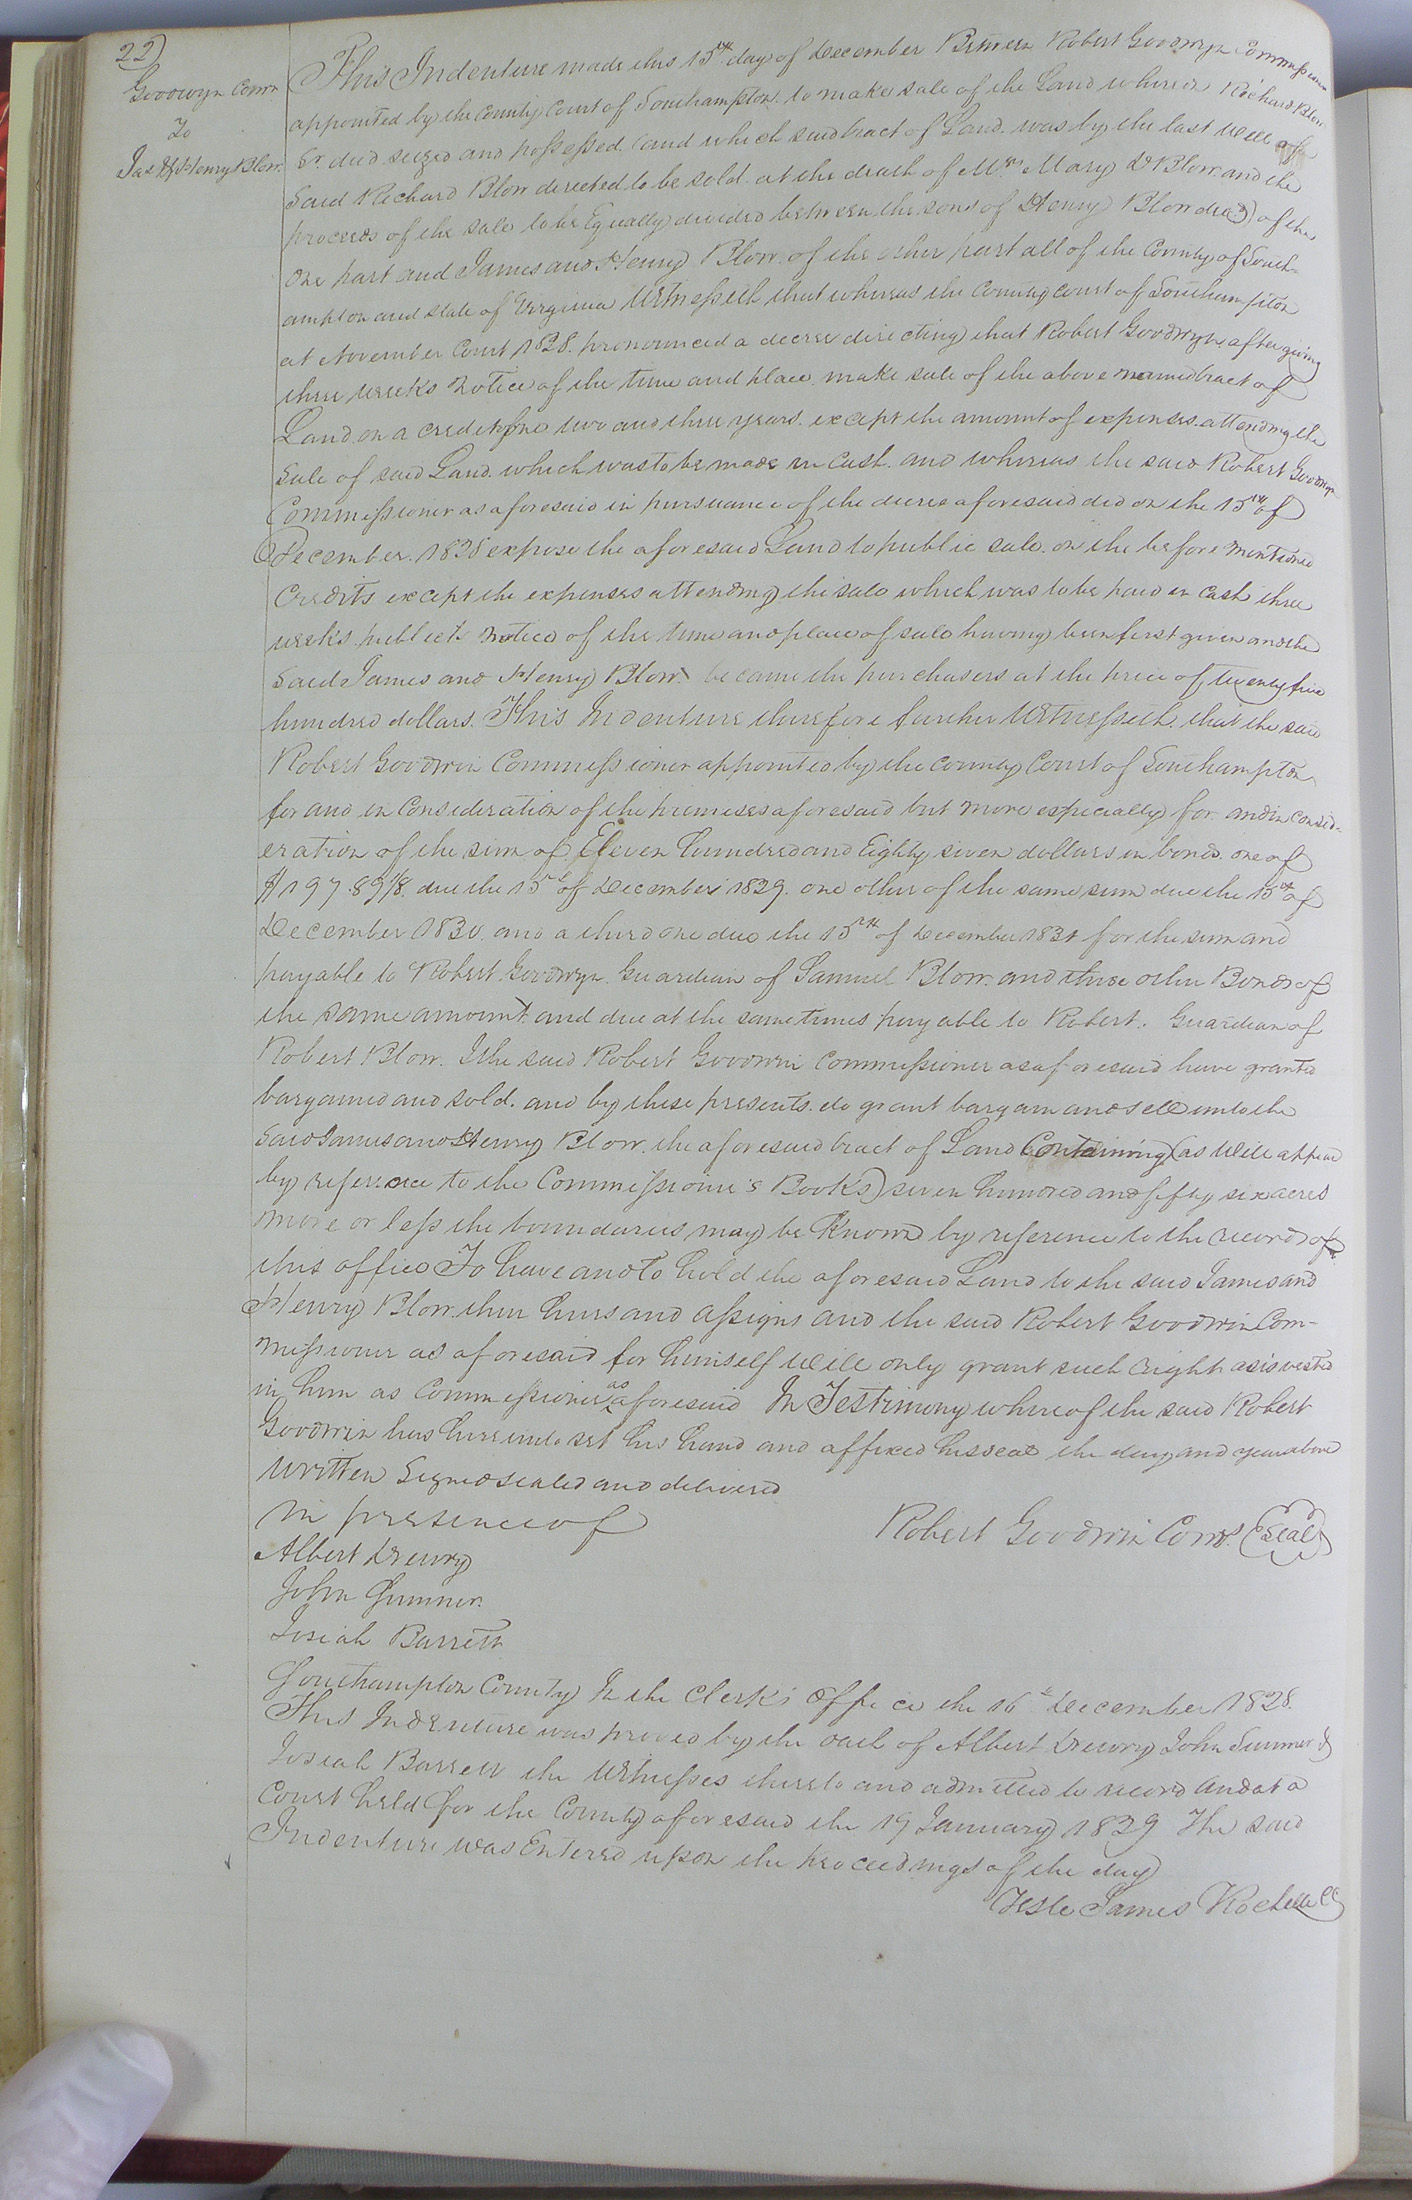 22)
Goodwyn Comr
To
Jas & Henry Blow
This Indenture made this 15th day of December Between Robert Goodwyn Commissioner
appointed by the County Court of Southampton to make sale of the Land whereon Richard Blow
Sr died seized and possessed (and which said tract of Land was by the last will of
said Richard Blow directed to be sold at the death of Mrs Mary D Blow and the
proceeds of the sale to be Equally divided between the sons of Henry Blow decd) of the
one part and James and Henry Blow of the other part all of the County of South-
ampton and state of Virginia Witnesseth that whereas the County Court of Southampton
at November Court 1828 pronounced a decree directing that Robert Goodwyn after giving
three weeks notice of the time and place make sale of the above named tract of
Land on a credit of one two and three years except the amount of expenses attending the
sale of said Land which was to be made in cash and whereas the said Robert Goodwyn
Commissioner as aforesaid in pursuance of the decree aforesaid did on the 15th of
December 1828 expose the aforesaid Land to public sale on the before mentioned
Credits except the expenses attending the sale which was to be paid in cash three
weeks publick notice of the time and place of sale having been first given and the
said James and Henry Blow became the purchasers at the price of twenty five
hundred dollars. This Indenture therefore further Witnesseth that the said
Robert Goodwin Commissioner appointed by the county Court of Southampton
for and in Consideration of the premises aforesaid but more especially for and in consid-
eration of the sum of Eleven hundred and Eighty seven dollars in bonds one of
$197.89 1/8 due the 15th of December 1829 one other of the same sum due the 15th of
December 1830 and a third one due the 15th of December 1831 for the sum and
payable to Robert Goodwyn Guardian of Samuel Blow and three other Bonds of
the same amount and due at the same times payable to Robert. Guardian of
Robert Blow. I the said Robert Goodwin commissioner as aforesaid have granted
bargained and sold. and by these presents do grant bargain and sell unto the
said James and Henry Blow the aforesaid tract of Land Containing (as will appear
by reference to the Commissioner's Books) seven hundred and fifty six acres
more or less the boundaries may be known by reference to the records of
this office To have and to hold the aforesaid Land to the said James and
Henry Blow their heirs and assigns and the said Robert Goodwin Com-
missioner as aforesaid for himself will only grant such right as is vested
in him as Commissioner as aforesaid In Testimony whereof the said Robert
Goodwin has hereunto set his hand and affixed his seal the day and year above
written Signed sealed and delivered
in presence of
Robert Goodwin Comr (Seal)
Albert Drewry
John Sumner
Josiah Barrett
Southampton County In the Clerk's office the 16th December 1828.
This Indenture was proved by the oath of Albert Drewry John Sumner &
Josiah Barrett the Witnesses thereto and admitted to record and at a
Court held for the County aforesaid the 19 January 1829 The said
Indenture was Entered upon the proceedings of the day
Teste James Rochelle CC